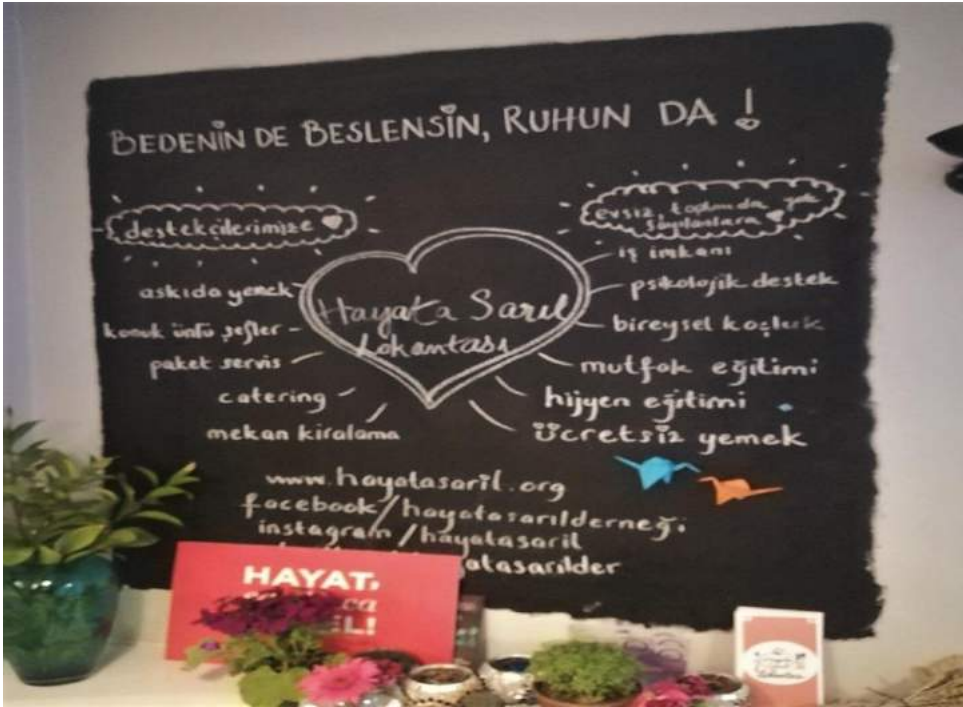 BEDENİN DE BESLENSİN, RUHUN DA !
destekçilerimize
askıda yemek
konuk ünlü şefler
paket servis
catering
mekan kiralama
Hayata Sarıl
Lokantası
evsiz, toplumda yok
sayılanlara
iş imkanı
psikolojik destek
bireysel koçluk
mutfak eğitimi
hijyen eğitimi
ücretsiz yemek
www.hayatasaril.org
facebook/hayatasarılderneği
instagram/hayatasaril
atasarılder
HAYAT,